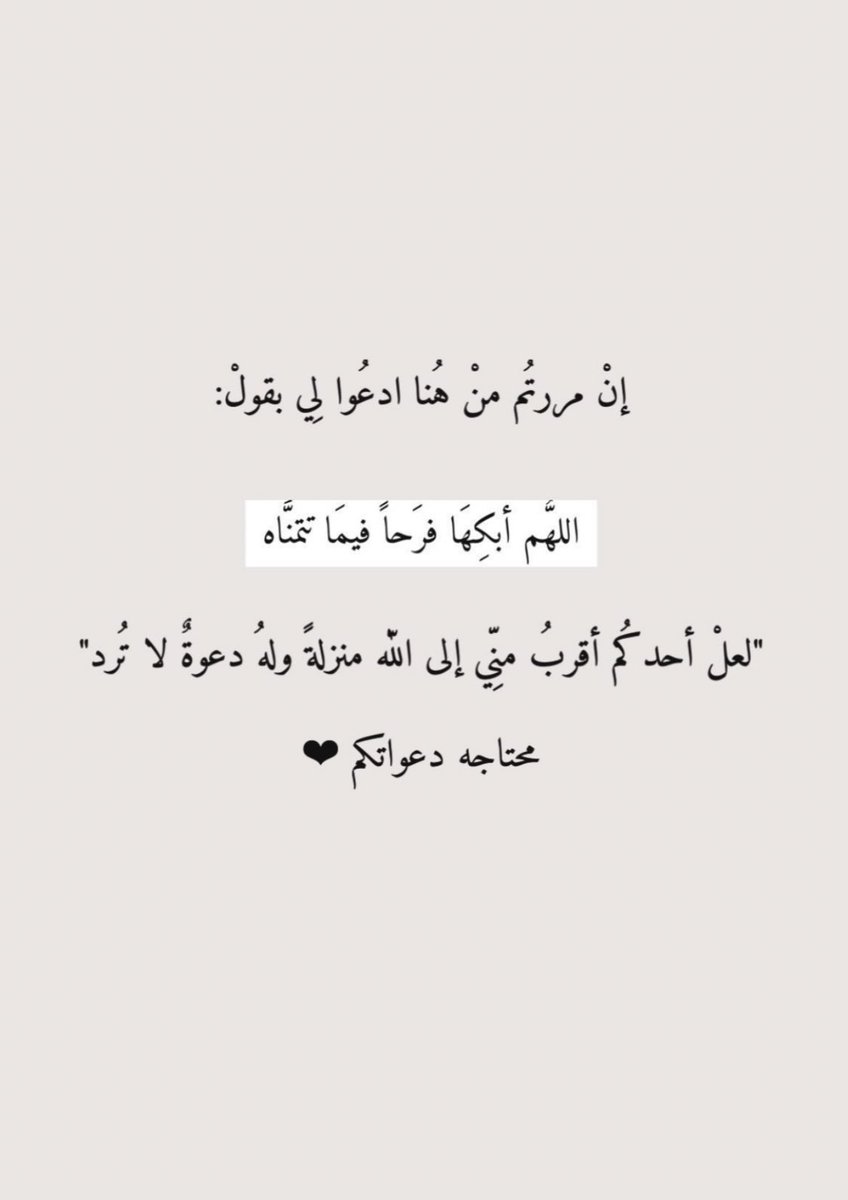 إنْ مررتُم منْ هُنا ادعُوا لِي بقولْ:
اللهُّم أبكِهَا فرَحاً فيمَا تتمنَّاه
"لعلْ أحدكُم أقربُ منِّي إلى الله منزلةً ولهُ دعوةٌ لا تُرد"
محتاجه دعواتكم ❤